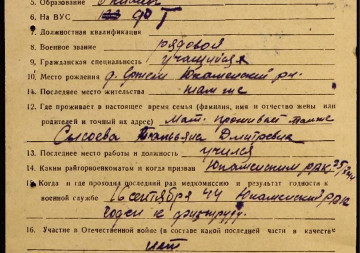 5. Образование
6. На ВУС
7. Должностная квалификация
8. Военное звание рядовой
9. Гражданская специальность учащийся
10. Место рождения д. Юкаменский р-н
11. Последнее место жительства
12. Где проживает в настоящее время семья (фамилия, имя и отчество жены или
родителей и точный их адрес) мат.
Сысоева Татьяна Дмитревна
13. Последнее место работы и должность учился
14. Каким райгорвоенкоматом и когда призван Юкаменским РВК
15. Когда и где проходил последний раз медкомиссию и результат годности к
военной службе 16 сентября 44 Юкаменский РВК
годен к
16. Участие в Отечественной войне (в составе какой последней части и качестве
нет